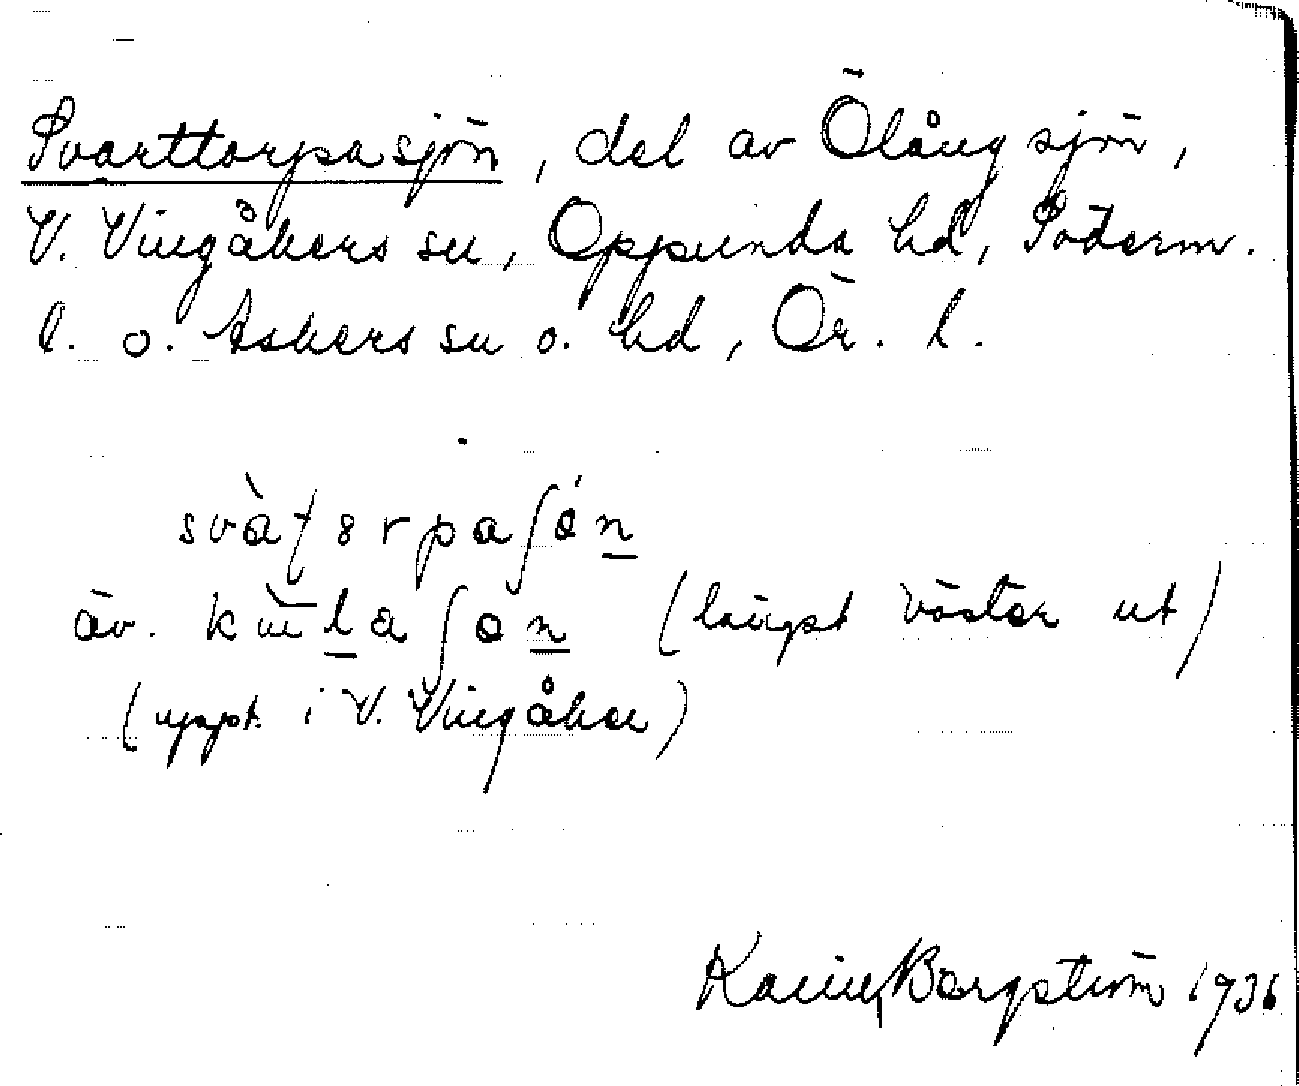 Svarttorpasjön, del av Ölångsjön,
V. Vingåkers sn, Oppunda hd, Söderm.
l. o. Askers sn o. hd, Ör. l.
äv. (längst väster ut)
(uppt. i V. Vingåker)
Karin Bergström 1936